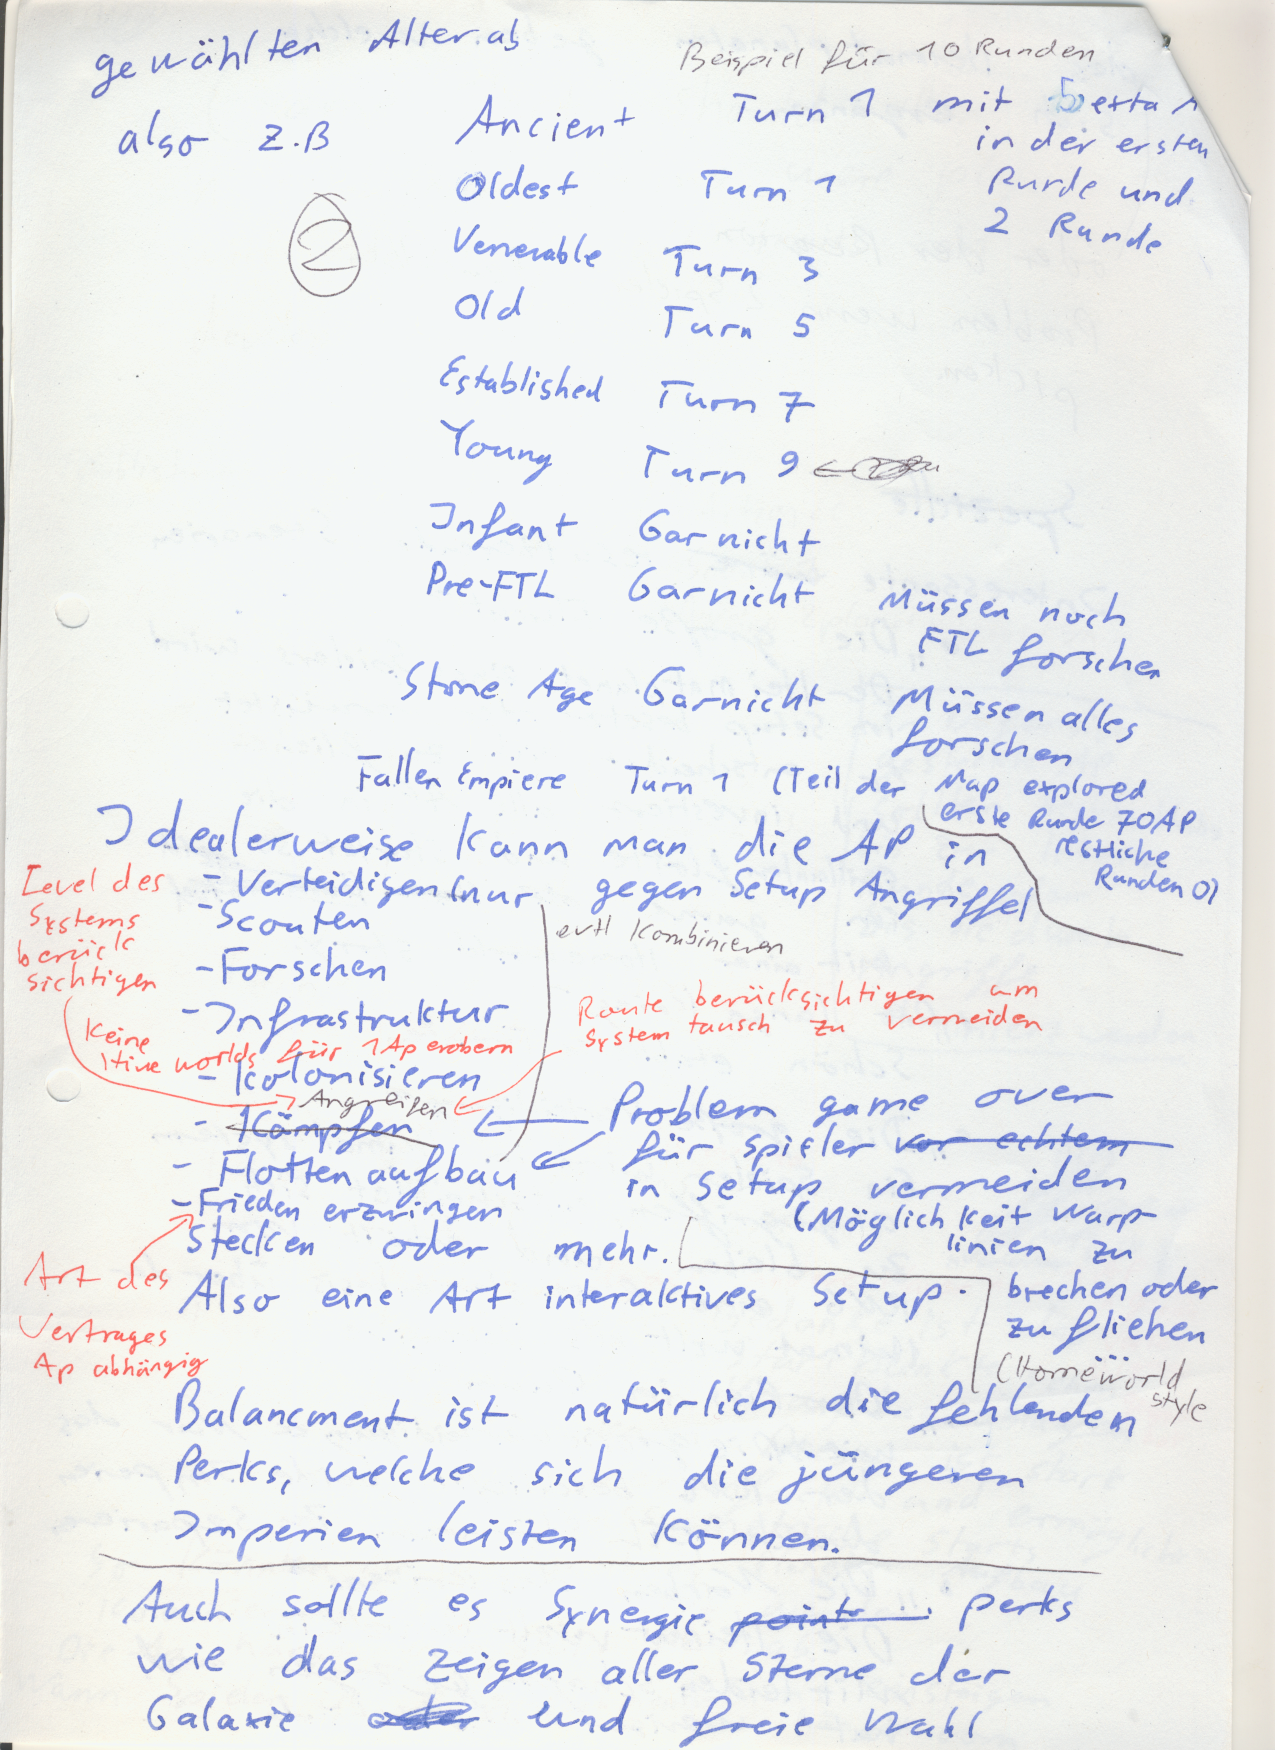 gewählten Alter ab
Beispiel für 10 Runden
also z.B Ancient Turn 1 mit 5 extra
in der ersten
Runde und
2 Runde
Oldest Turn 1
2
Venerable Turn 3
Old Turn 5
Established Turn 7
Young Turn 9 ←
Infant Garnicht
Pre-FTL Garnicht Müssen noch
FTL forschen
Stone Age Garnicht Müssen alles
forschen
Fallen Empiere Turn 1 (Teil der Map explored
erste Runde 70AP
restliche
Runden 0)
Idealerweise kann man die AP in
- Verteidigen (nur gegen Setup Angriffe)
- Scouten
evtl kombinieren
- Forschen
- Infrastruktur
- Kolonisieren
Angreifen
- Kämpfen
- Flottenaufbau
- Frieden erzwingen
Stecken oder mehr.
Level des
Systems
berück
sichtigen
Keine
Hive worlds für 1Ap erobern
Route berücksichtigen um
System tausch zu vermeiden
Problem game over
für spieler vor echtem
in setup vermeiden
(Möglichkeit Warp-
linien zu
brechen oder
zu fliehen
(Homeworld
style
Art des
Vertrages
Ap abhängig
Also eine Art interaktives Setup.
Balancment ist natürlich die fehlenden
Perks, welche sich die jüngeren
Imperien leisten können.
Auch sollte es Synergie point perks
wie das zeigen aller Sterne der
Galaxie oder und freie Wahl